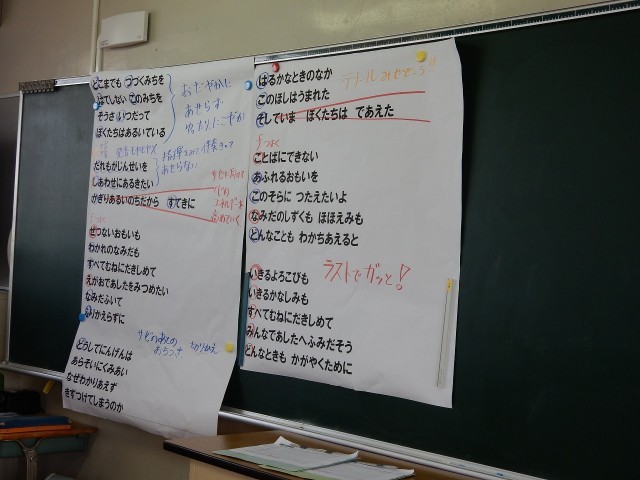 どこまでも つづくみちを
はてしない このみちを
そうさ いつだって
ぼくたちはあるいている
だれもがじんせいを
しあわせにあるきたい
かぎりあるいのちだから すてきに
せつないおもいも
わかれのなみだも
すべてむねにだきしめて
えがおであしたをみつめたい
なみだふいて
ふりかえらずに
どうしてにんげんは
あらそいにくみあい
なぜわかりあえず
きずつけてしまうのか
おだやかに
あせらず
サビのあとの
おちつき
切りかえ
はるかなときのなか
このほしはうまれた
そしていま ぼくたちは であえた
ことばにできない
あふれるおもいを
このそらに つたえたいよ
なみだのしずくも ほほえみも
どんなことも わかちあえると
いきるよろこびも
いきるかなしみも
すべてむねにだきしめて
みんなであしたへふみだそう
どんなときも かがやくために
ラストでガッと!